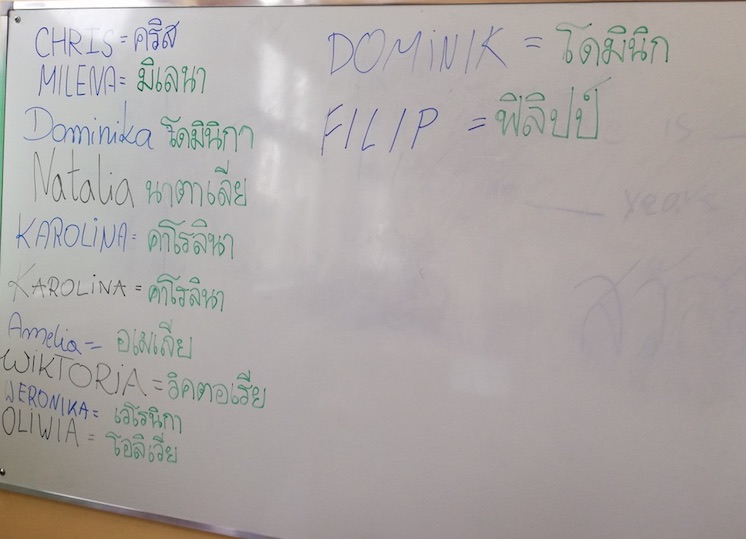 CHRIS = คริส
MILENA = มิเลนา
Dominika โดมินิกา
Natalia นาตาเลีย
KAROLINA = คาโรลินา
KAROLINA = คาโรลินา
Amelia = อเมเลีย
WIKTORIA = วิคตอเรีย
WERONIKA = เวโรนิกา
OLIWIA = โอลิเวีย
DOMINIK = โดมินิก
FILIP = ฟิลิปป์
is
years